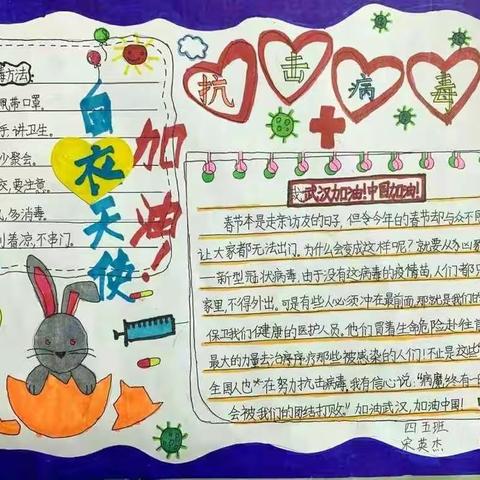 毒方法:
佩带口罩.
手,讲卫生.
少聚会.
要注意.
多消毒.
着凉,不串门.
白衣天使
加油!
抗击病毒
武汉加油!中国加油!
春节本是走亲访友的日子,但今年的春节却与众不同
让大家都无法出门。为什么会变成这样呢?就要从
一新型冠状病毒,由于没有这病毒的疫情苗,人们都只
家里,不得外出。可是有些人必须冲在最前面,那就是我们的
保卫我们健康的医护人员。他们冒着生命危险赴往
最大的力量去治疗那些被感染的人们!不止是这些
全国人也在努力抗击病毒,我有信心说:"病魔终有一
会被我们的团结打败."加油武汉,加油中国!
四五班
宋英杰